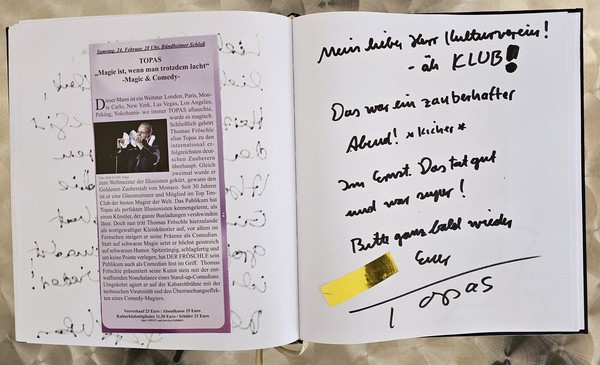 Samstag, 24. Februar, 20 Uhr, Bündheimer Schloß
TOPAS
„Magie ist, wenn man trotzdem lacht“
-Magic & Comedy-
Dieser Mann ist ein Weltstar. London, Paris, Mon-
te Carlo, New York, Las Vegas, Los Angeles,
Peking, Yokohama- wo immer TOPAS auftauchte,
wurde es magisch.
Schließlich gehört
Thomas Fröschle
alias Topas zu den
international er-
folgreichsten deut-
schen Zauberern
überhaupt. Gleich
zweimal wurde er
zum Weltmeister der Illusionen gekürt, gewann den
Goldenen Zauberstab von Monaco. Seit 30 Jahren
ist er eine Glanznummer und Mitglied im Top Ten-
Club der besten Magier der Welt. Das Publikum hat
Topas als perfekten Illusionisten kennengelernt, als
einen Künstler, der ganze Busladungen verschwinden
lässt. Doch nun tritt Thomas Fröschle hierzulande
als wortgewaltiger Kleinkünstler auf, vor allem im
Fernsehen steigert er seine Präsenz als Comedian.
Statt auf schwarze Magie setzt er höchst geistreich
auf schwarzen Humor. Spitzzüngig, schlagfertig und
um keine Pointe verlegen, hat DER FRÖSCHLE sein
Publikum auch als Comedian fest im Griff. Thomas
Fröschle präsentiert seine Kunst stets mit der ent-
waffnenden Nonchalance eines Stand-up-Comedians.
Umgekehrt agiert er auf der Kabarettbühne mit der
technischen Virtuosität und den Überraschungseffek-
ten eines Comedy-Magiers.
Vorverkauf 23 Euro / Abendkasse 25 Euro
Kulturklubmitglieder 11,50 Euro / Schüler 21 Euro
Mein lieber Herr Kulturverein!
- äh KLUB!!
Das war ein zauberhafter
Abend! *kicher*
Im Ernst. Das tat gut
und war super!
Bitte ganz bald wieder
Euer
Topas